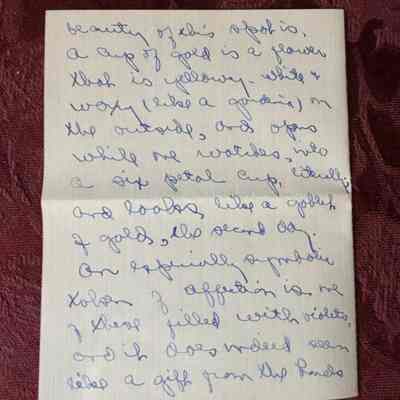 beauty of this spot is.
A cup of gold is a flower
that is yellowy-white &
waxy (like a gardenia) on
the outside, and opens
while one watches, into
a six petal cup, literally
and looks like a goblet
of gold, the second day.
An especially symbolic
token of affection is one
of these filled with violets,
and it does indeed seem
like a gift from the hands